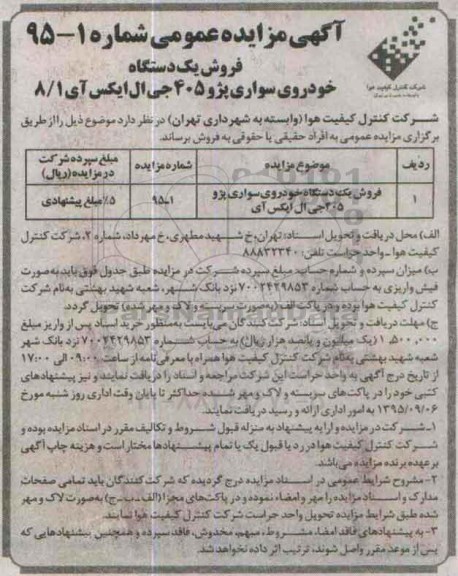 آگهی مزایده عمومی شماره ۱-۹۵
فروش یک دستگاه
خودروی سواری پژو ۴۰۵ جی ال ایکس آی ۸/۱
شرکت کنترل کیفیت هوا
شرکت کنترل کیفیت هوا (وابسته به شهرداری تهران) در نظر دارد موضوع ذیل را از طریق
برگزاری مزایده عمومی به افراد حقیقی یا حقوقی به فروش برساند.
ردیف موضوع مزایده شماره مزایده مبلغ سپرده شرکت
در مزایده (ریال)
۱ فروش یک دستگاه خودروی سواری پژو
۴۰۵ جی ال ایکس آی ۱-۹۵ ۵٪ مبلغ پیشنهادی
الف) محل دریافت و تحویل اسناد: تهران، خ شهید مطهری، خ مهرداد، شماره ۲، شرکت کنترل
کیفیت هوا - واحد حراست تلفن: ۸۸۸۳۲۳۴۰
ب) میزان سپرده و شماره حساب: مبلغ سپرده شرکت در مزایده طبق جدول فوق باید به صورت
فیش واریزی به حساب شماره ۷۰۰۲۴۲۹۸۵۳ نزد بانک شهر، شعبه شهید بهشتی به نام شرکت
کنترل کیفیت هوا بوده و در پاکت الف (به صورت بسته و لاک و مهر شده) تحویل گردد.
ج) مهلت دریافت و تحویل اسناد: شرکت کنندگان می بایست به منظور خرید اسناد پس از واریز مبلغ
۱,۵۰۰,۰۰۰ (یک میلیون و پانصد هزار ریال) به حساب شماره ۷۰۰۲۴۲۹۸۵۳ نزد بانک شهر
شعبه شهید بهشتی به نام شرکت کنترل کیفیت هوا همراه با معرفی نامه از ساعت ۰۹:۰۰ الی ۱۷:۰۰
از تاریخ درج آگهی به واحد حراست این شرکت مراجعه و اسناد را دریافت نمایند و نیز پیشنهادهای
کتبی خود را در پاکت های سربسته و لاک و مهر شده حداکثر تا پایان وقت اداری روز شنبه مورخ
۱۳۹۵/۰۹/۰۶ به امور اداری ارائه و رسید دریافت نمایند.
۱- شرکت در مزایده و ارایه پیشنهاد به منزله قبول شروط و تکالیف مقرر در اسناد مزایده بوده و
شرکت کنترل کیفیت هوا در رد یا قبول یک یا تمام پیشنهادها مختار است و هزینه چاپ آگهی
بر عهده برنده مزایده می باشد.
۲- مشروح شرایط عمومی در اسناد مزایده درج گردیده که شرکت کنندگان باید تمامی صفحات
مدارک و اسناد مزایده را مهر و امضاء نموده و در پاکت های مجزا (الف-ب-ج) به صورت لاک و مهر
شده طبق شرایط مزایده تحویل واحد حراست شرکت کنترل کیفیت هوا نمایند.
۳- به پیشنهادهای فاقد امضاء، مشروط، مبهم، مخدوش، فاقد سپرده و همچنین پیشنهادهایی که
پس از موعد مقرر واصل شوند، ترتیب اثر داده نخواهد شد.